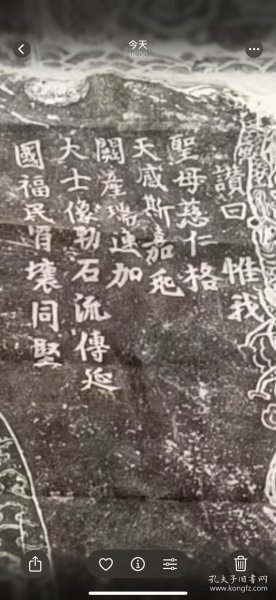 今天
16:00
讚曰惟我
聖母慈仁格
天感斯嘉兆
闕產瑞連加
大士像勒石流傳延
國福民宵壤同堅
孔夫子旧书网
www.kongfz.com